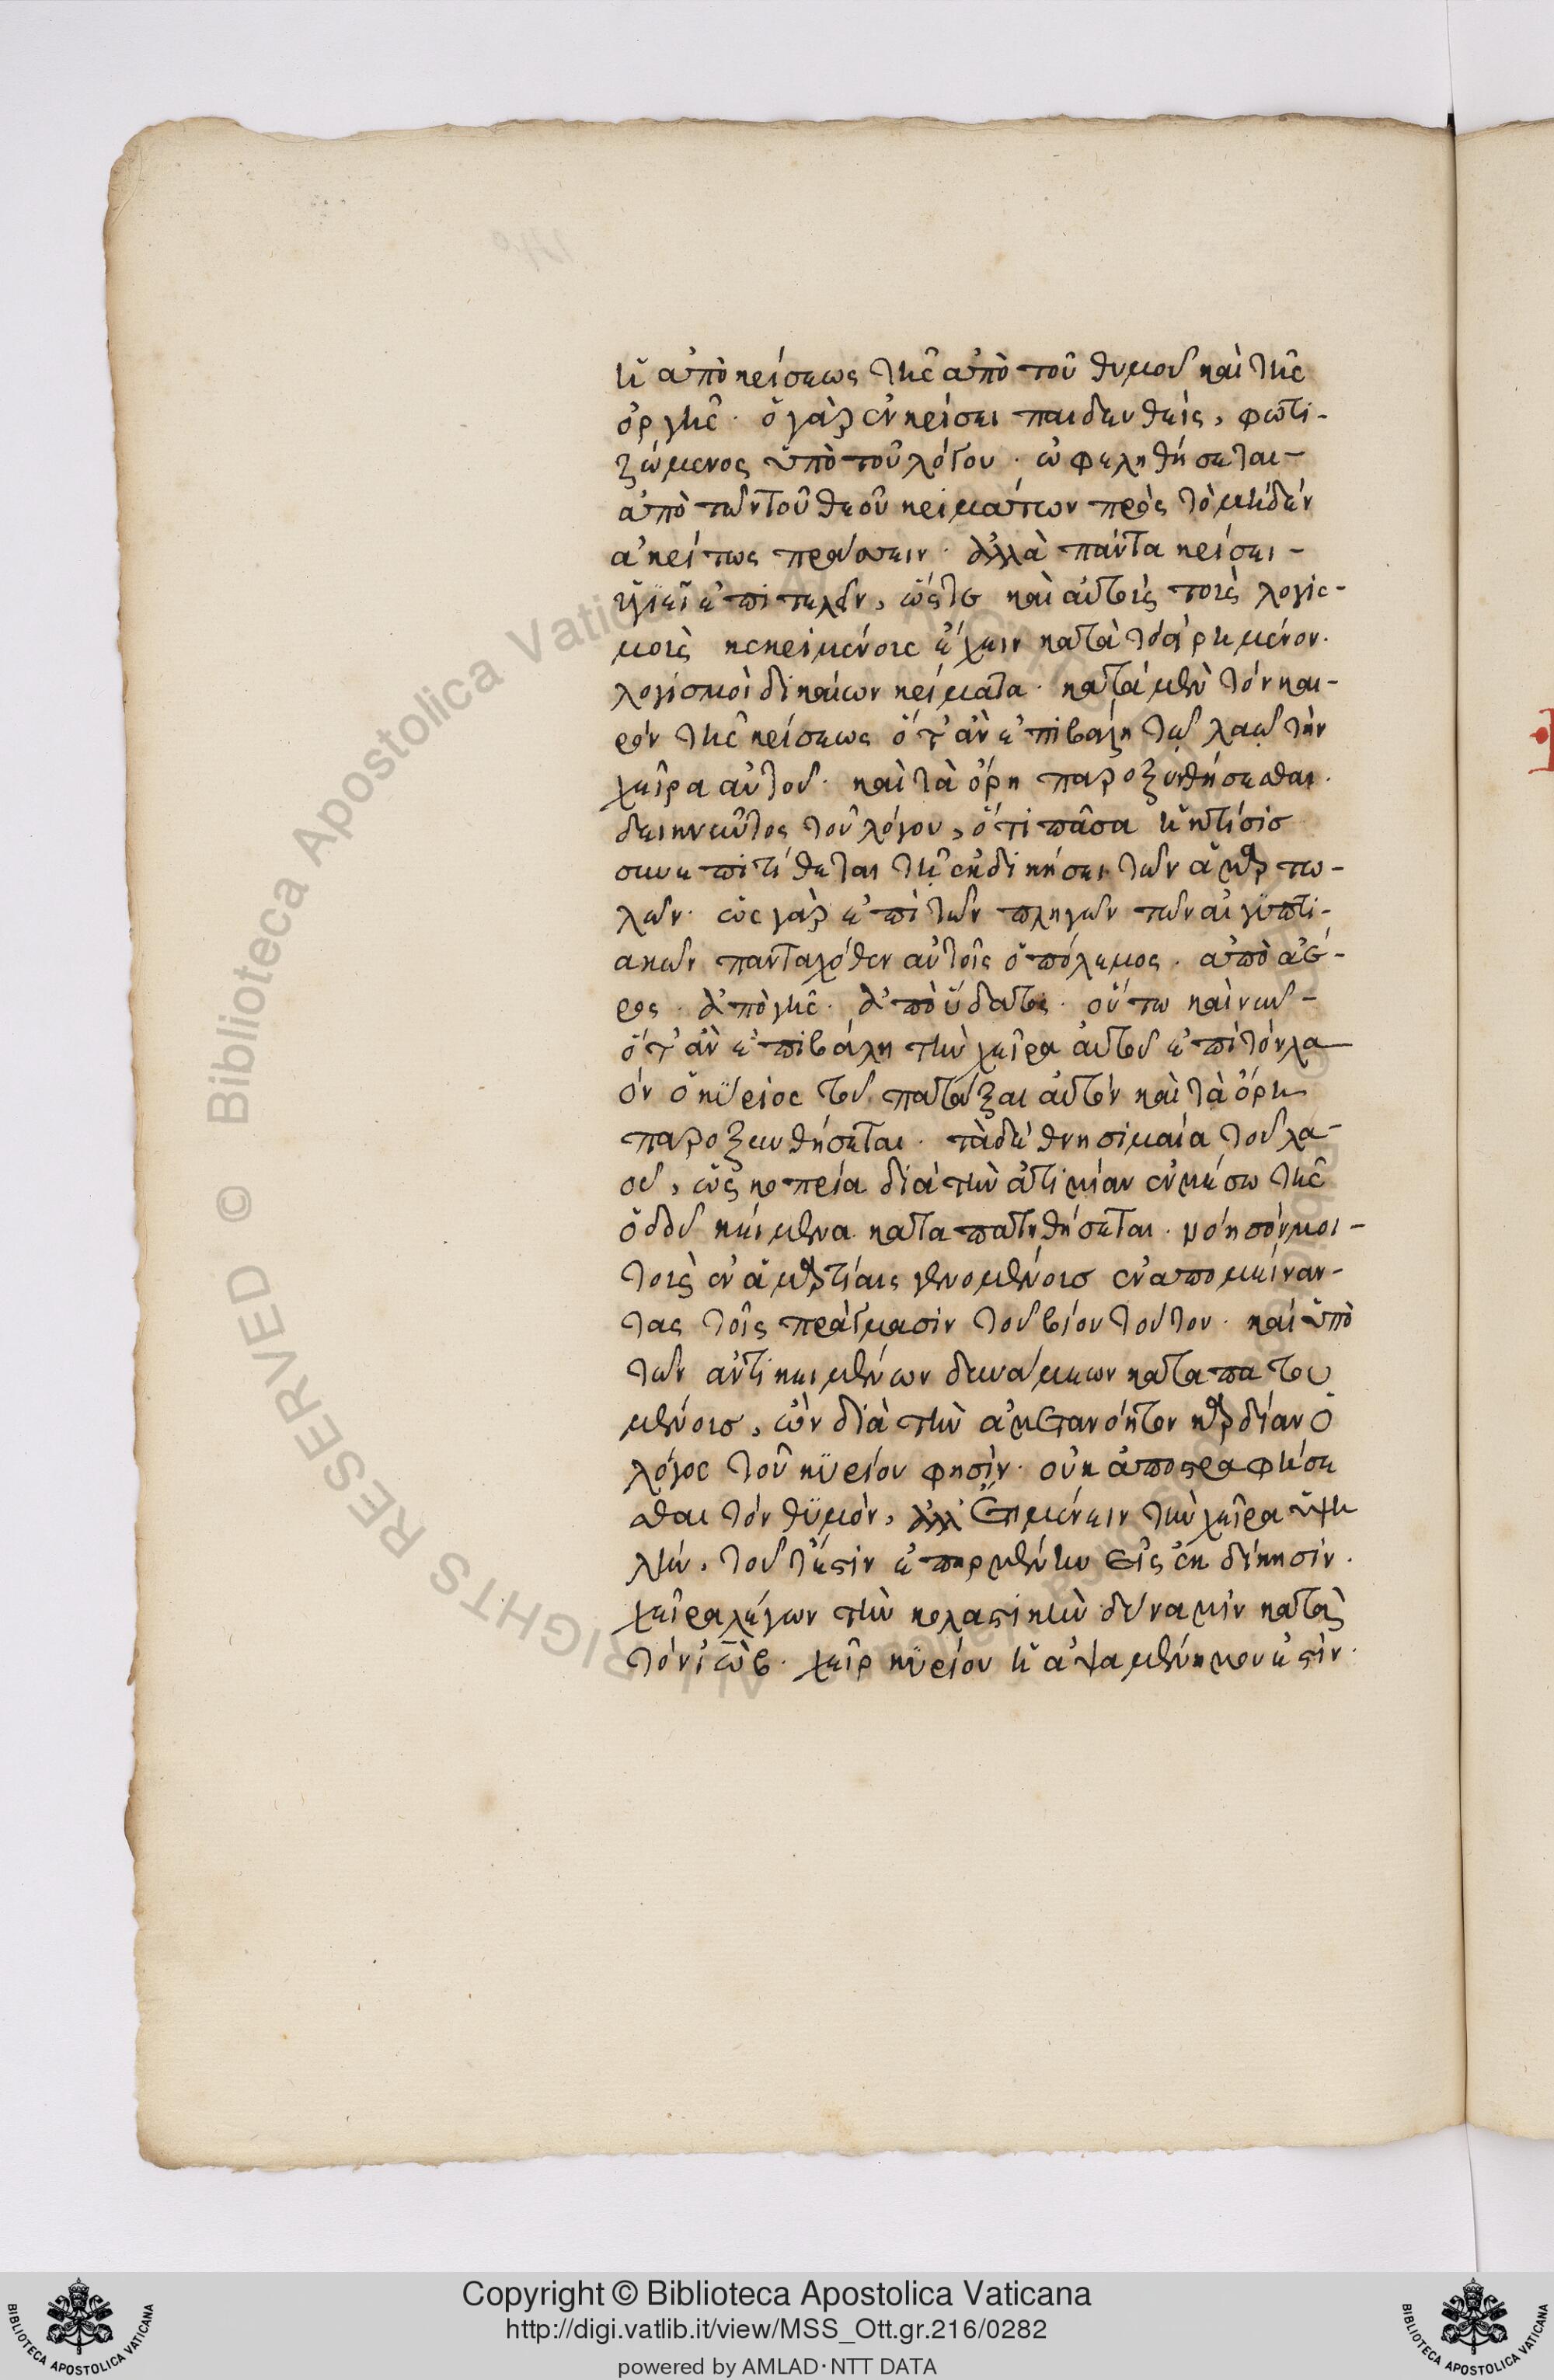 ἢ ἀπὸ κρίσεως τῆς ἀπὸ τοῦ θυμοῦ καὶ τῆς
ὀργῆς· ὁ γὰρ ἐν κρίσει παιδευθεὶς, φωτι-
ζώμενος ὑπὸ τοῦ λόγου· ὠφεληθήσεται-
ἀπὸ τῶν τοῦ θεοῦ κριμάτων πρὸς τὸ μηδὲν
ἀκρίτως πράσσειν· ἀλλὰ πάντα κρίσει-
ἐπιτελεῖν, ὥστε καὶ αὐτοῖς τοῖς λογισ-
μοῖς κεκριμένοις ἔχειν κατὰ τὸ εἰρημένον·
λογισμοὶ δικαίων κρίματα· κατὰ μὲν τὸν και-
ρὸν τῆς κρίσεως ὅτ' ἂν ἐπιβάλῃ τῷ λαῷ τὴν
χεῖρα αὐτοῦ· καὶ τὰ ὄρη παροξυνθήσεσθαι·
δεικνύντος τοῦ λόγου, ὅτι πᾶσα ἡ κτίσις
συνεπιτίθεται τῇ ἐκδικήσει τῶν ἁμαρτω-
λῶν· ὡς γὰρ ἐπὶ τῶν πληγῶν τῶν αἰγυπτι-
ακῶν πανταχόθεν αὐτοῖς ὁ πόλεμος· ἀπὸ ἀέ-
ρος· ἀπὸ γῆς· ἀπὸ ὕδατος· οὕτω καὶ νῦν-
ὅτ' ἂν ἐπιβάλῃ τὴν χεῖρα αὐτοῦ ἐπὶ τὸν λα
ὸν ὁ κύριος τοῦ πατάξαι αὐτὸν καὶ τὰ ὄρη
παροξυνθήσεται· τὰ δὲ θνησιμαῖα τοῦ λα-
οῦ, ὡς κοπρία διὰ τὴν ἀτιμίαν ἐν μέσω τῆς
ὁδοῦ κείμενα καταπατηθήσεται· νόησόν μοι-
τοῖς ἐν ἁμαρτίαις γενομένοις ἐναπομείναν-
τας τοῖς πράγμασιν τοῦ βίου τούτου· καὶ ὑπὸ
τῶν ἀντικειμένων δυνάμεων καταπατου
μένοις, ὧν διὰ τὴν ἀμετανόητον καρδίαν ὁ
λόγος τοῦ κυρίου φησίν· οὐκ ἀποστραφήσε
σθαι τὸν θυμὸν, ἀλλ' ἔτι μένειν τὴν χεῖρα ὑψη
λήν, τουτέστιν ἐπηρμένην εἰς ἐκδίκησιν·
χεῖρα λέγων τὴν κολαστικὴν δύναμιν κατὰ
τὸν ἰώβ· χεὶρ κυρίου ἡ ἁψαμένη μου ἐστίν·
Copyright © Biblioteca Apostolica Vaticana
http://digi.vatlib.it/view/MSS_Ott.gr.216/0282
powered by AMLAD·NTT DATA